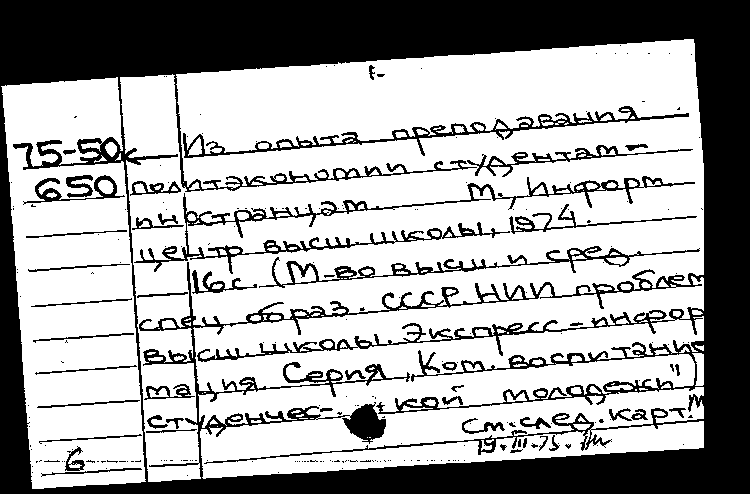 75-50к Из опыта преподавания
650 политэкономии студентам-
иностранцам. М., Информ.
центр высш. школы, 1974.
16с. (М-во высш. и сред.
спец. образ. СССР. НИИ проблем
высш. школы. Экспресс-инфор
мация. Серия „Ком. воспитание
студенчес- кой молодежи")
См. след. карт.
19.III.75.
6